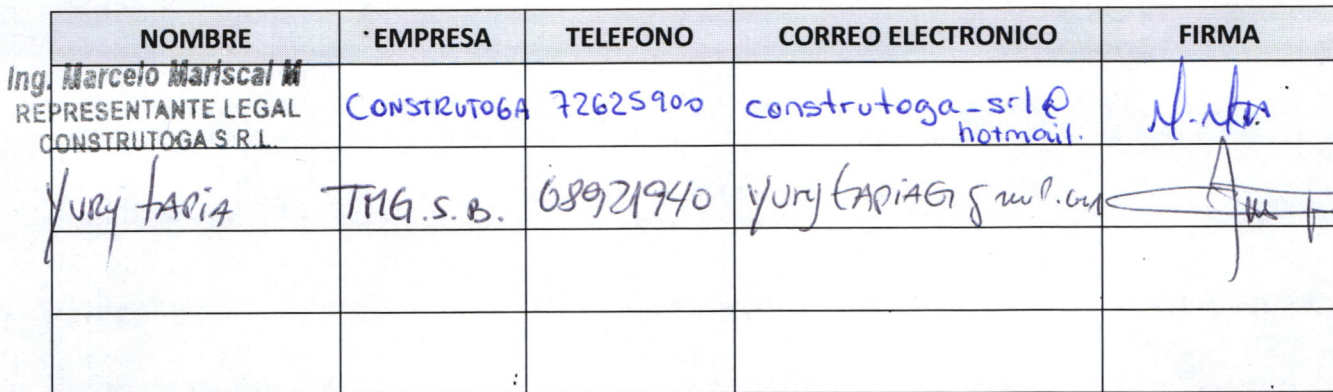 NOMBRE EMPRESA TELEFONO CORREO ELECTRONICO FIRMA
Ing. Marcelo Mariscal M
REPRESENTANTE LEGAL
CONSTRUTOGA S.R.L.
CONSTRUTOGA 72625900 construtoga_srl@
hotmail.
Yury tapia TMG.S.B. 68921940 yurytapiaG